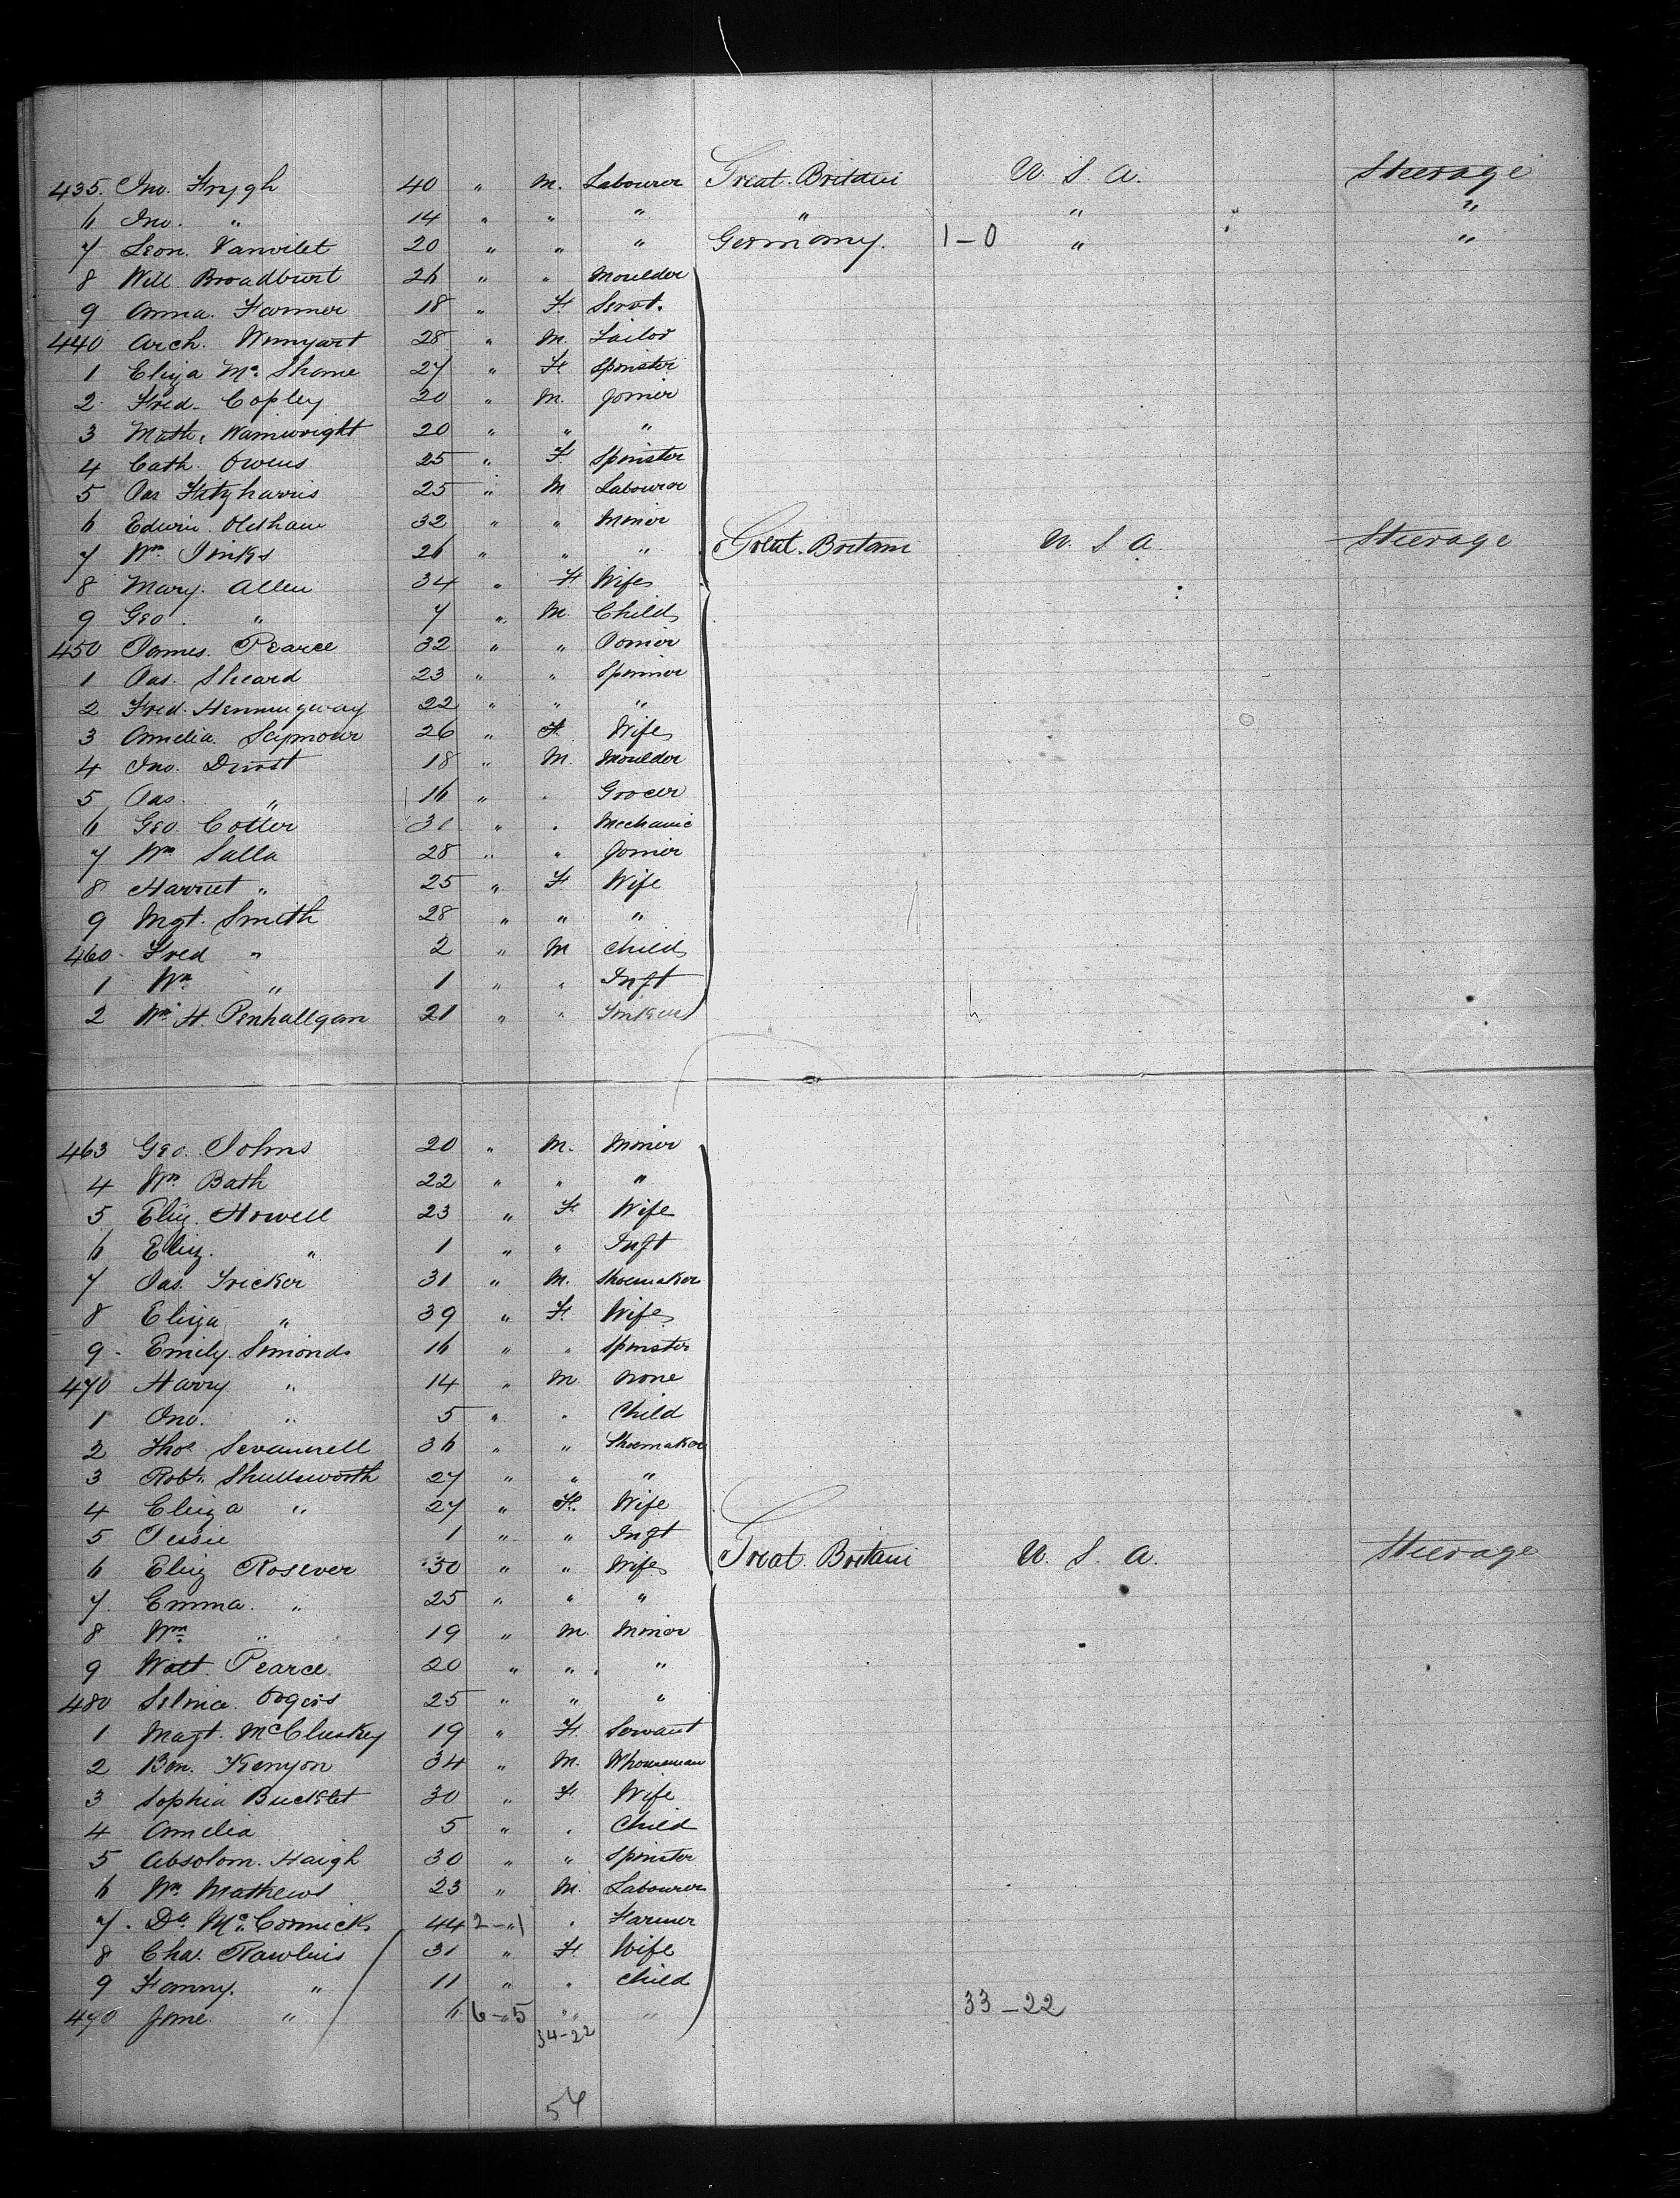 435. Jno. Frygh 40 " M. Labourer Great Britain U. S. A. Steerage
6 Jno. " 14 " " " " " "
7 Leon. Vanvilet 20 " " " Germany. 1-0 " "
8 Will Broadburt 26 " " Moulder
9 Anna. Farmer 18 " F Servt.
440 Arch. Winyart 28 " M. Tailor
1 Eliza Mc. Shane 27 " F Spinster
2 Fred. Copley 20 " M. Joiner
3 Math. Wainwright 20 " " "
4 Cath. Owens 25 " F Spinster
5 Jas Fitzharris 25 " M Labourer
6 Edwin. Oldham 32 " " Miner
7 Wm. Jinks 26 " " " Great. Britain U. S. A. Steerage
8 Mary. Allen 34 " F Wife
9 Geo. " 7 " M. Child
450 James. Pearce 32 " " Joiner
1 Jas. Sheard 23 " " Spinner
2 Fred. Hemmingway 22 " " "
3 Amelia. Seymour 26 " F. Wife
4 Jno. Durst 18 " M. Moulder
5 Jas. " 16 " " Grocer
6 Geo. Cotter 31 " " Mechanic
7 Wm Salla 28 " " Joiner
8 Harriet " 25 " F Wife
9 Mgt. Smith 28 " " "
460 Fred " 2 " M Child
1 Wm. " 1 " " Inft
2 Wm. H. Penhallgan 21 " "
463 Geo. Johns 20 " M. Miner
4 Wm Bath 22 " " "
5 Eliz. Howell 23 " F Wife
6 Eliz. " 1 " " Inft
7 Jas. Tricker 31 " M. Shoemaker
8 Eliza " 39 " F. Wife
9 Emily. Simonds 16 " " Spinster
470 Harry " 14 " M. None
1 Jno. " 5 " " Child
2 Thos. 36 " " Shoemaker
3 Robt. 27 " " "
4 Eliza " 27 " F. Wife
5 Jessie 1 " " Inft
6 Eliz Rosever 30 " " Wife Great. Britain U. S. A. Steerage
7. Emma. " 25 " " "
8 Wm " 19 " M. Miner
9 Walt. Pearce 20 " " "
480 Selina. Ogers 25 " " "
1 Magt. McCluskey 19 " F. Servant
2 Ben. Kenyon 34 " M. Whouseman
3 Sophia Bucklet 30 " F Wife
4 Amelia 5 " " Child
5 Absolom. Haigh 30 " " Spinster
6 Wm. Mathews 23 " M. Labourer
7. Dd. Mc. Cormick 44 2-1 " Farmer
8 Cha. Rawlins 31 " F. Wife
9 Fanny. " 11 " " Child
490 Jane. " 6 6-5 " " 33-22
34-22
56